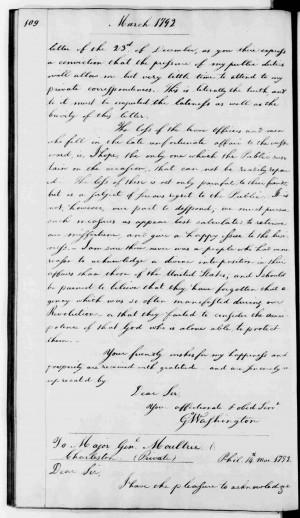 109
March 1792
letter of the 23d of December, as you there express
a conviction that the pressure of my public duties
will allow me but very little time to attend to my
private correspondences. This is literally the truth, and
to it must be imputed the lateness as well as the
brevity of this letter.
The loss of the brave officers and men
who fell in the late unfortunate affair to the west
ward, is, I hope, the only one which the Public sus
tain on the occasion, that can not be readily repair
ed. The loss of these is not only painful to their friends,
but is a subject of serious regret to the Public. It is
not, however, our part to despond; we must pursue
such measures as appear best calculated to retrieve
our misfortune, and give a happy issue to the busi
ness. I am sure there never was a people who had more
reason to acknowledge a divine interposition in their
affairs than those of the United States; and I should
be pained to believe that they have forgotten that a
gency which was so often manifested during our
Revolution, or that they failed to consider the omni
potence of that God who is alone able to protect
them.
Your friendly wishes for my happiness and
prosperity are received with gratitude and are sincerely re
ciprocated by
Dear Sir,
Your affectionate & obed. Servt
G. Washington
To Major Genl. Moultrie
Charleston (Private) Phil. Mar. 1792
Dear Sir,
I have the pleasure to acknowledge